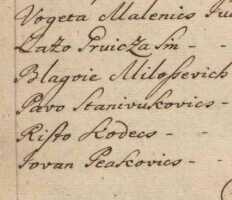 Vogeta Malenics
Lazo Pruicza Sin - -
Blagoie Milossevich
Pavo Stanivukovics -
Risto Kodecs - -
Iovan Peakovics - -